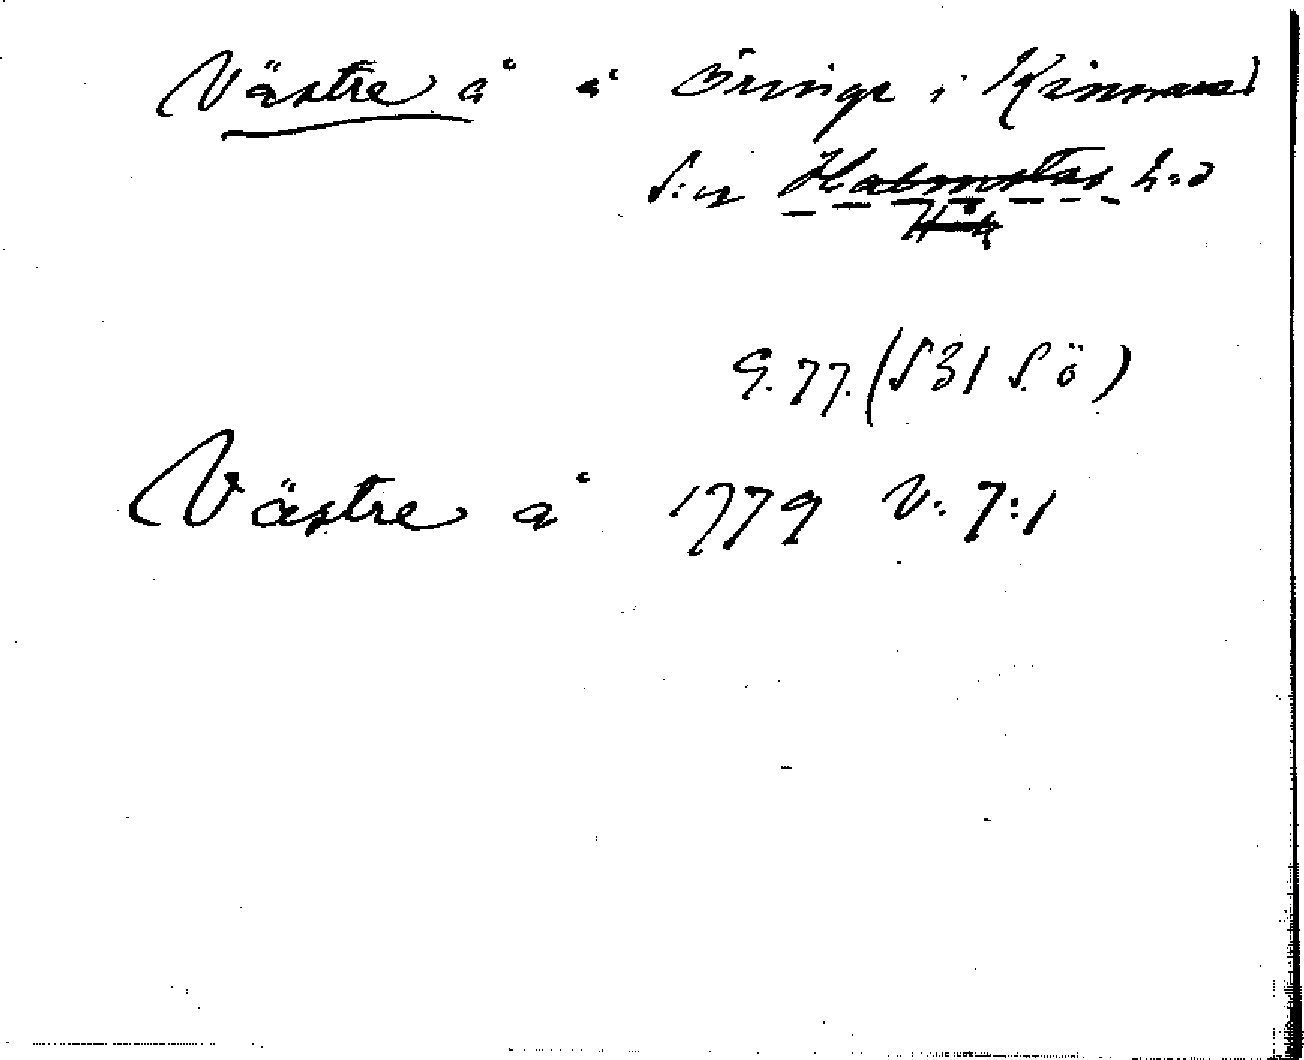 Västre å å Öringe i Kinnared
S:n Halmstad h:d
G. 77. (S 31 S. ö)
Västre å 1779 V: 7:1